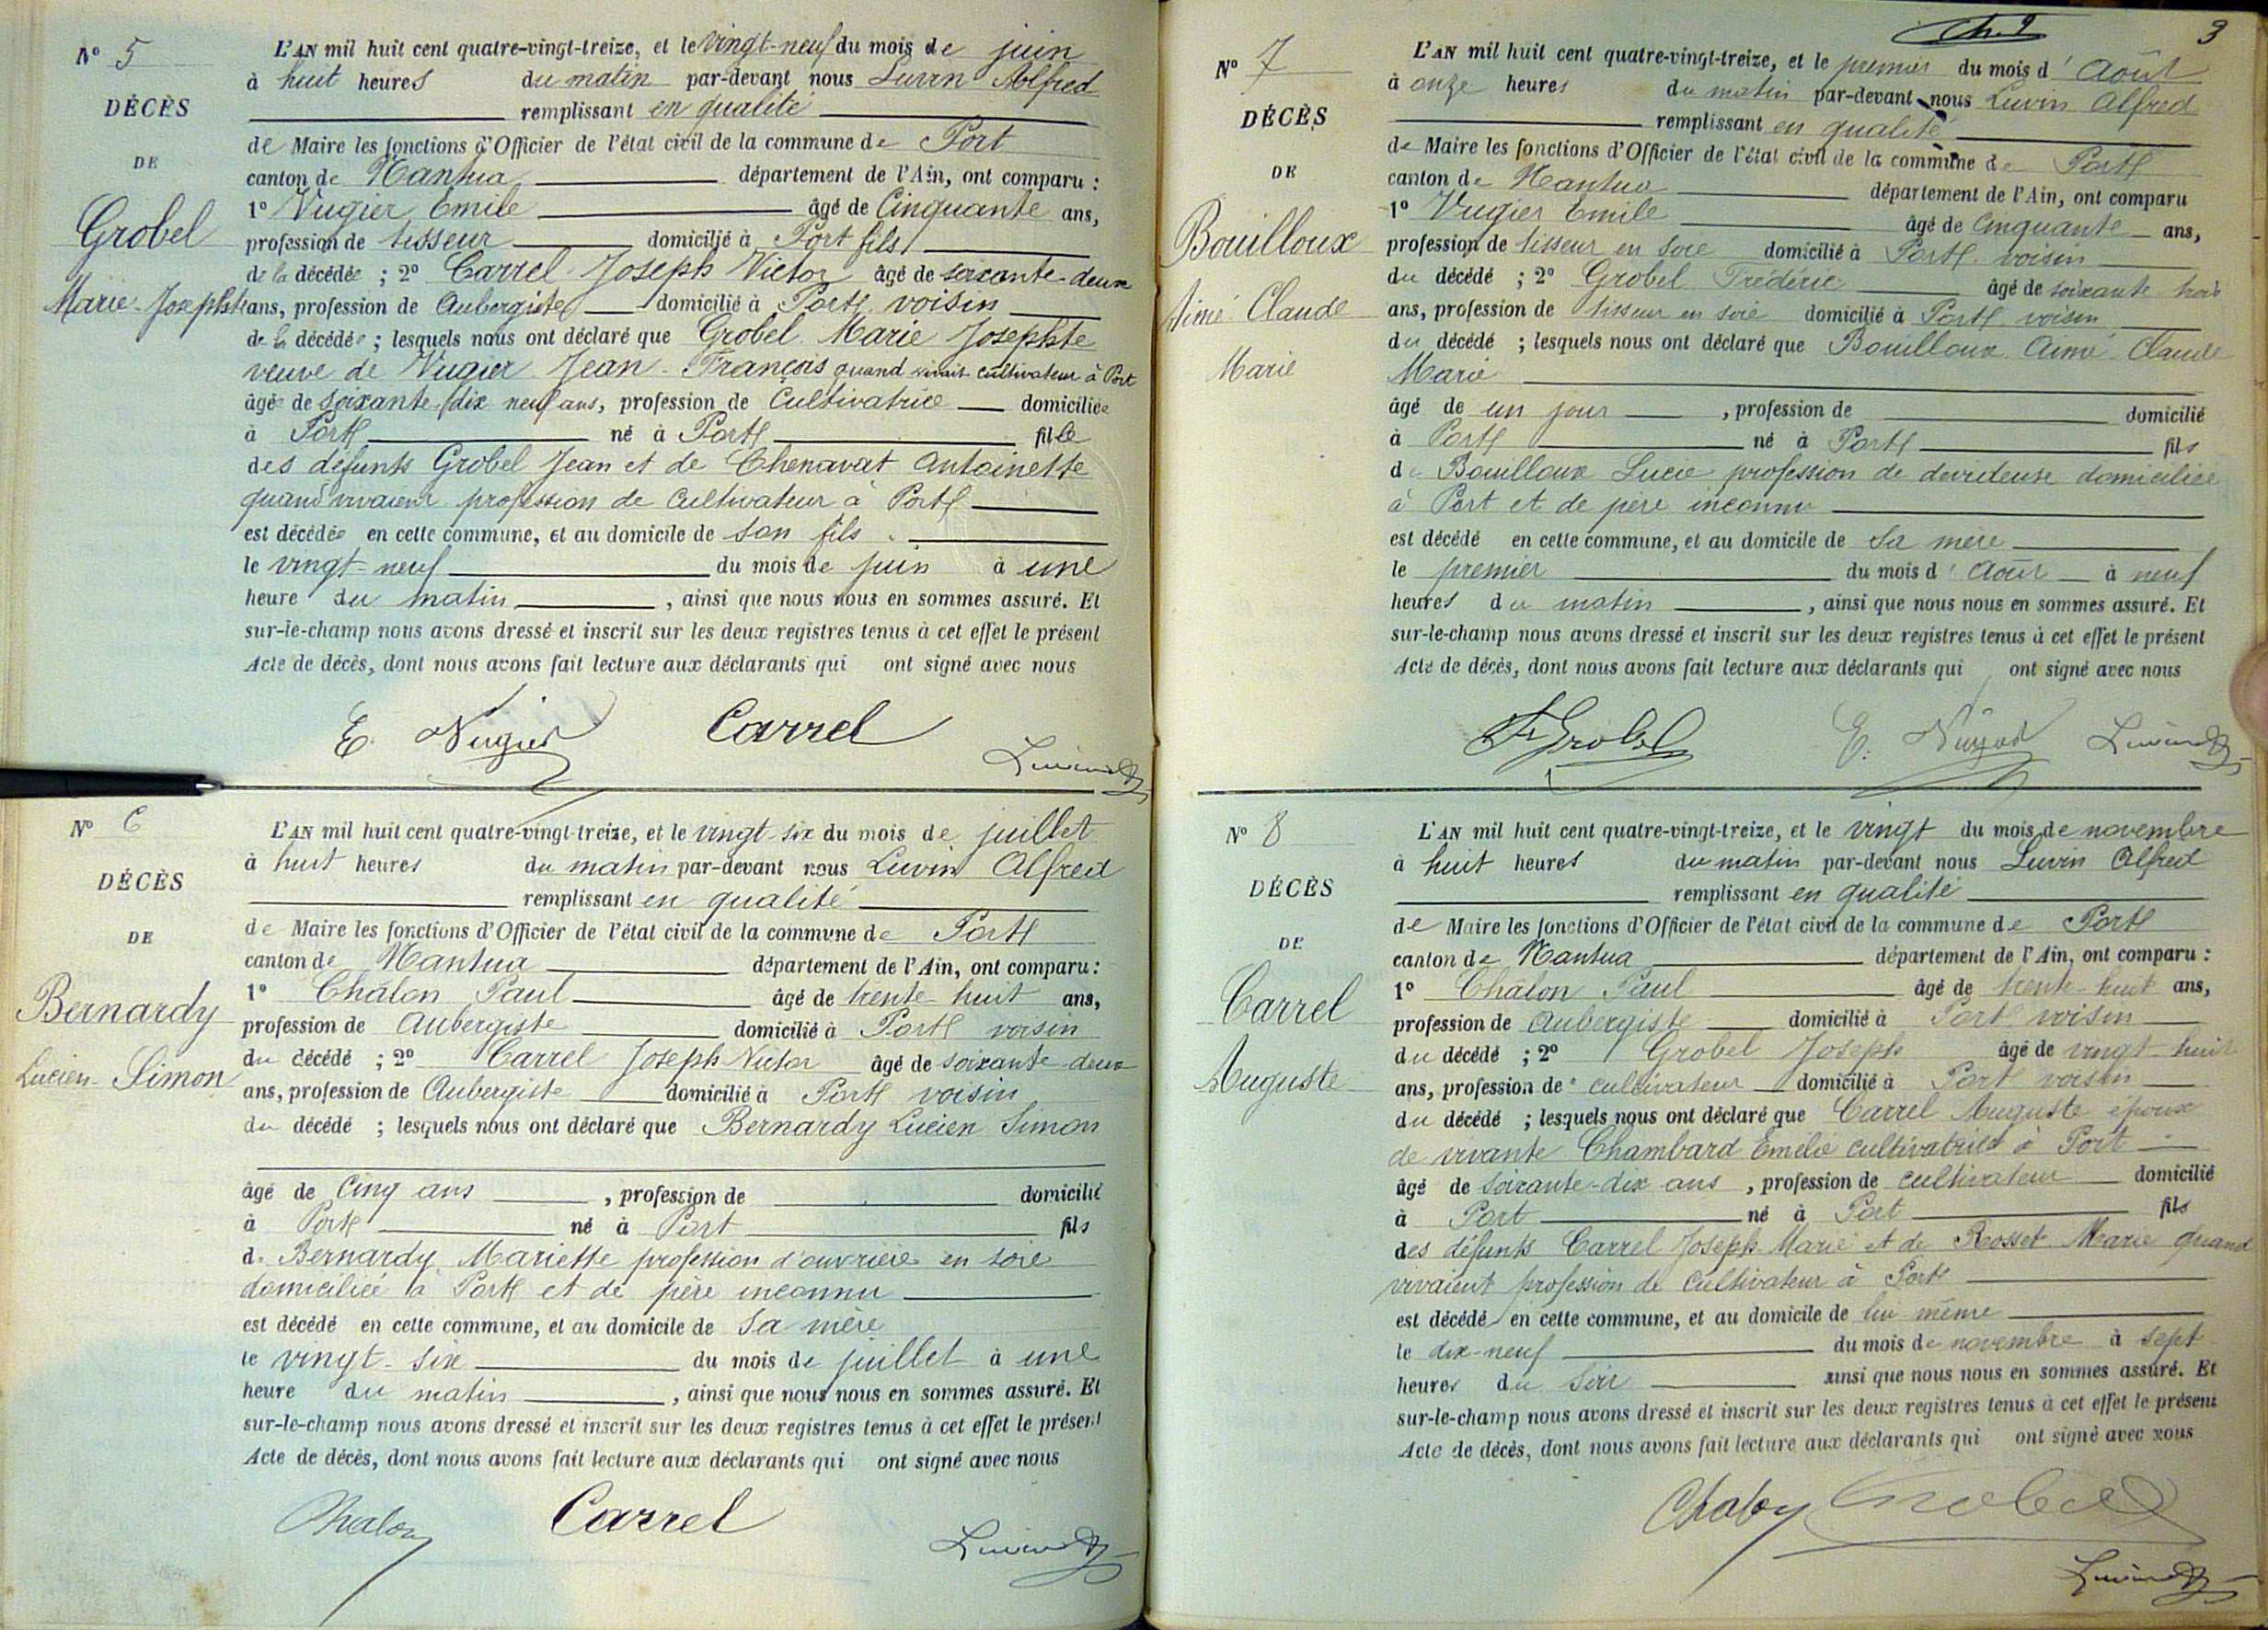 N° 5
DÉCÈS
DE
Grobel
Marie-Josephte
L'AN mil huit cent quatre-vingt-treize, et le vingt-neuf du mois de juin
à huit heures du matin par-devant nous Luvin Alfred
remplissant en qualité
de Maire les fonctions d'Officier de l'état civil de la commune de Port
canton de Nantua département de l'Ain, ont comparu :
1° Nugier Emile âgé de Cinquante ans,
profession de tisseur domicilié à Port fils
de la décédée ; 2° Carrel Joseph Victor âgé de soixante-deux
ans, profession de Aubergiste domicilié à Port voisin
de la décédée ; lesquels nous ont déclaré que Grobel Marie Josephte
veuve de Nugier Jean-François quand vivait cultivateur à Port
âgée de soixante-dix neuf ans, profession de Cultivatrice domiciliée
à Port né à Port fille
des défunts Grobel Jean et de Chenavat Antoinette
quand vivaient profession de Cultivateur à Port
est décédée en cette commune, et au domicile de son fils
le vingt-neuf du mois de juin à une
heure du matin, ainsi que nous nous en sommes assuré. Et
sur-le-champ nous avons dressé et inscrit sur les deux registres tenus à cet effet le présent
Acte de décès, dont nous avons fait lecture aux déclarants qui ont signé avec nous
E. Nugier Carrel Luvin
N° 6
DÉCÈS
DE
Bernardy
Lucien-Simon
L'AN mil huit cent quatre-vingt-treize, et le vingt-six du mois de juillet
à huit heures du matin par-devant nous Luvin Alfred
remplissant en qualité
de Maire les fonctions d'Officier de l'état civil de la commune de Port
canton de Nantua département de l'Ain, ont comparu :
1° Chalon Paul âgé de trente-huit ans,
profession de Aubergiste domicilié à Port voisin
du décédé ; 2° Carrel Joseph-Victor âgé de soixante-deux
ans, profession de Aubergiste domicilié à Port voisin
du décédé ; lesquels nous ont déclaré que Bernardy Lucien Simon
âgé de Cinq ans, profession de domicilié
à Port né à Port fils
de Bernardy Mariette profession d'ouvrière en soie
domiciliée à Port et de père inconnu
est décédé en cette commune, et au domicile de sa mère
le vingt-six du mois de juillet à une
heure du matin, ainsi que nous nous en sommes assuré. Et
sur-le-champ nous avons dressé et inscrit sur les deux registres tenus à cet effet le présent
Acte de décès, dont nous avons fait lecture aux déclarants qui ont signé avec nous
Chalon Carrel Luvin
3
N° 7
DÉCÈS
DE
Bouilloux
Aimé Claude
Marie
L'AN mil huit cent quatre-vingt-treize, et le premier du mois d'Août
à onze heures du matin par-devant nous Luvin Alfred
remplissant en qualité
de Maire les fonctions d'Officier de l'état civil de la commune de Port
canton de Nantua département de l'Ain, ont comparu
1° Nugier Emile âgé de Cinquante ans,
profession de tisseur en soie domicilié à Port voisin
du décédé ; 2° Grobel Frédéric âgé de soixante trois
ans, profession de tisseur en soie domicilié à Port voisin
du décédé ; lesquels nous ont déclaré que Bouilloux Aimé Claude
Marie
âgé de un jour, profession de domicilié
à Port né à Port fils
de Bouilloux Lucie profession de devideuse domiciliée
à Port et de père inconnu
est décédé en cette commune, et au domicile de sa mère
le premier du mois d'Août à neuf
heures du matin, ainsi que nous nous en sommes assuré. Et
sur-le-champ nous avons dressé et inscrit sur les deux registres tenus à cet effet le présent
Acte de décès, dont nous avons fait lecture aux déclarants qui ont signé avec nous
Fr Grobel E. Nugier Luvin
N° 8
DÉCÈS
DE
Carrel
Auguste
L'AN mil huit cent quatre-vingt-treize, et le vingt du mois de novembre
à huit heures du matin par-devant nous Luvin Alfred
remplissant en qualité
de Maire les fonctions d'Officier de l'état civil de la commune de Port
canton de Nantua département de l'Ain, ont comparu :
1° Chalon Paul âgé de trente-huit ans,
profession de Aubergiste domicilié à Port voisin
du décédé ; 2° Grobel Joseph âgé de vingt-huit
ans, profession de cultivateur domicilié à Port voisin
du décédé ; lesquels nous ont déclaré que Carrel Auguste époux
de vivante Chambard Emélie cultivatrice à Port
âgé de soixante-dix ans, profession de cultivateur domicilié
à Port né à Port fils
des défunts Carrel Joseph Marie et de Rosset Marie quand
vivaient profession de cultivateur à Port
est décédé en cette commune, et au domicile de lui même
le dix-neuf du mois de novembre à sept
heures du soir ainsi que nous nous en sommes assuré. Et
sur-le-champ nous avons dressé et inscrit sur les deux registres tenus à cet effet le présent
Acte de décès, dont nous avons fait lecture aux déclarants qui ont signé avec nous
Chalon Grobel
Luvin